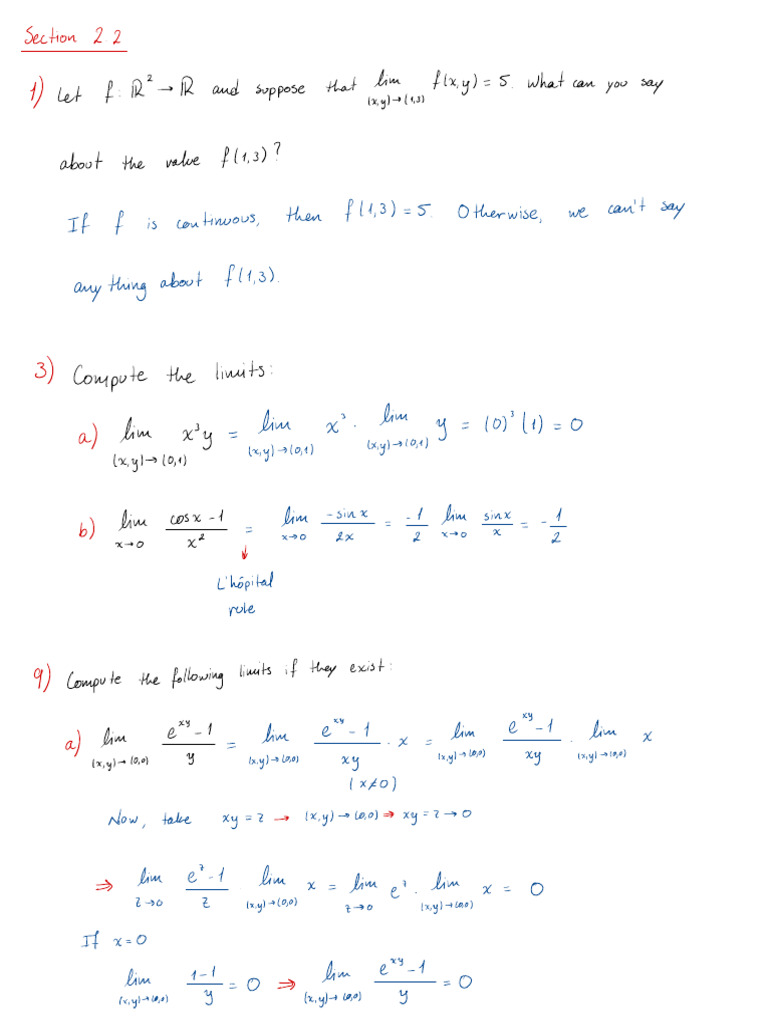 Section 2.2
1) Let f: ℝ² → ℝ and suppose that lim_{(x,y)→(1,3)} f(x,y) = 5. What can you say
about the value f(1,3)?
If f is continuous, then f(1,3) = 5. Otherwise, we can't say
anything about f(1,3).
3) Compute the limits:
a) lim_{(x,y)→(0,1)} x³y = lim_{(x,y)→(0,1)} x³ · lim_{(x,y)→(0,1)} y = (0)³(1) = 0
b) lim_{x→0} (cosx - 1)/x² = lim_{x→0} (-sinx)/(2x) = (-1)/2 lim_{x→0} (sinx)/x = -1/2
↓
L'hôpital
rule
9) Compute the following limits if they exist:
a) lim_{(x,y)→(0,0)} (e^{xy} - 1)/y = lim_{(x,y)→(0,0)} (e^{xy} - 1)/(xy) · x = lim_{(x,y)→(0,0)} (e^{xy} - 1)/(xy) · lim_{(x,y)→(0,0)} x
(x≠0)
Now, take xy = z → (x,y)→(0,0) ⇒ xy = z → 0
⇒ lim_{z→0} (e^z - 1)/z · lim_{(x,y)→(0,0)} x = lim_{z→0} e^z · lim_{(x,y)→(0,0)} x = 0
If x=0
lim_{(x,y)→(0,0)} (1-1)/y = 0 ⇒ lim_{(x,y)→(0,0)} (e^{xy} - 1)/y = 0